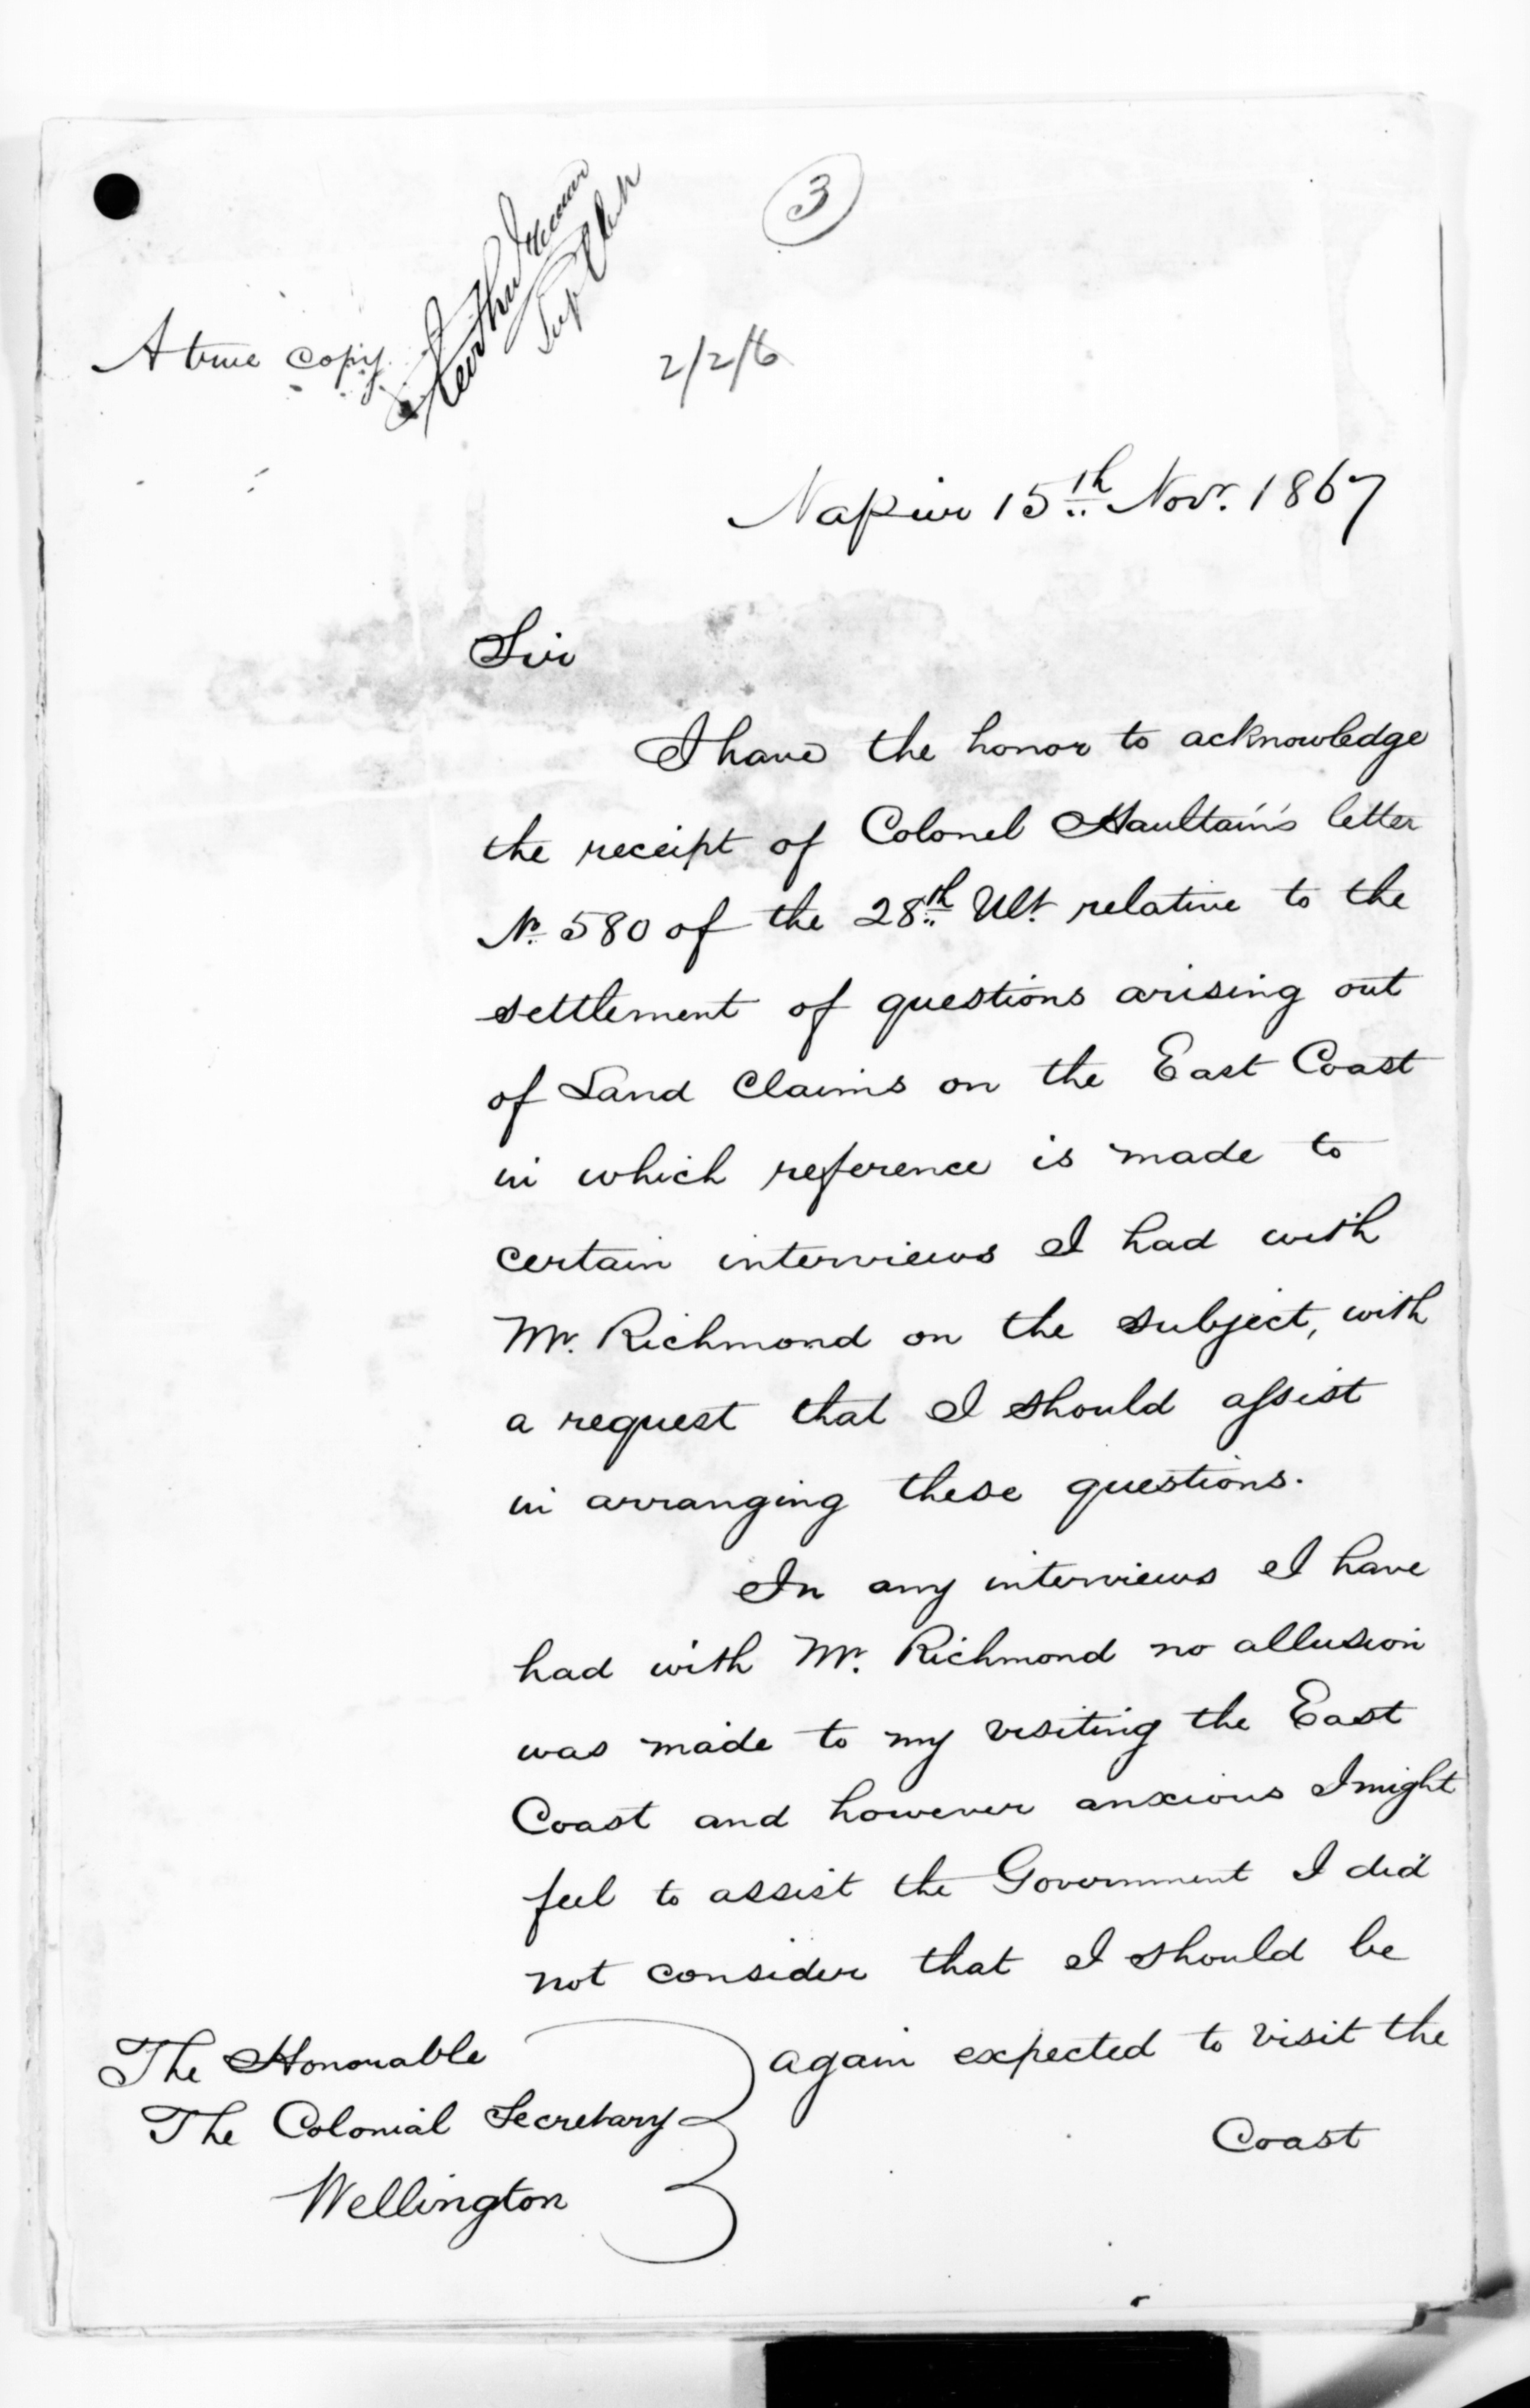 3
A true copy
Sup Clerk
2/2/6
Napier 15th Novr. 1867
Sir
I have the honor to acknowledge
the receipt of Colonel Haultain's letter
No. 580 of the 28th Ult. relative to the
settlement of questions arising out
of Land Claims on the East Coast
in which reference is made to
certain interviews I had with
Mr. Richmond on the subject, with
a request that I should assist
in arranging these questions.
In any interviews I have
had with Mr. Richmond no allusion
was made to my visiting the East
Coast and however anxious I might
feel to assist the Government I did
not consider that I should be
again expected to visit the
Coast
The Honorable
The Colonial Secretary
Wellington